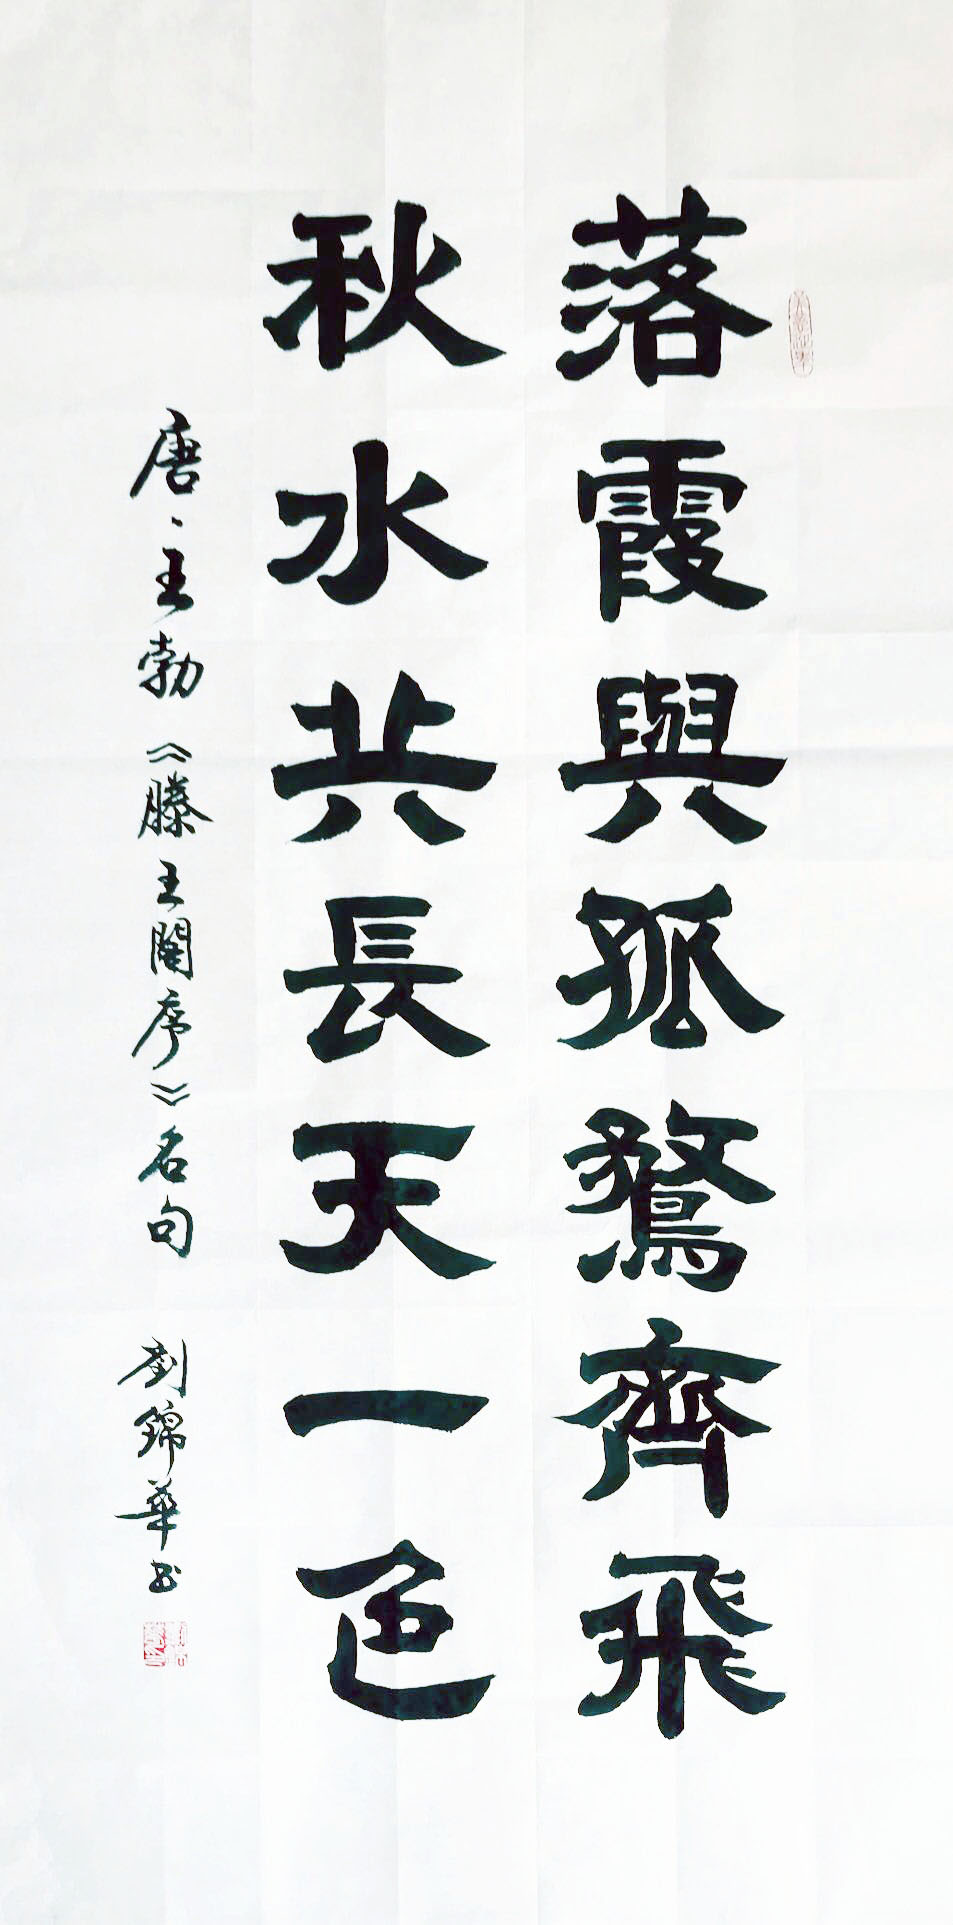 落霞與孤鶩齊飛
秋水共長天一色
唐、王勃《滕王閣序》名句 劉錦華书